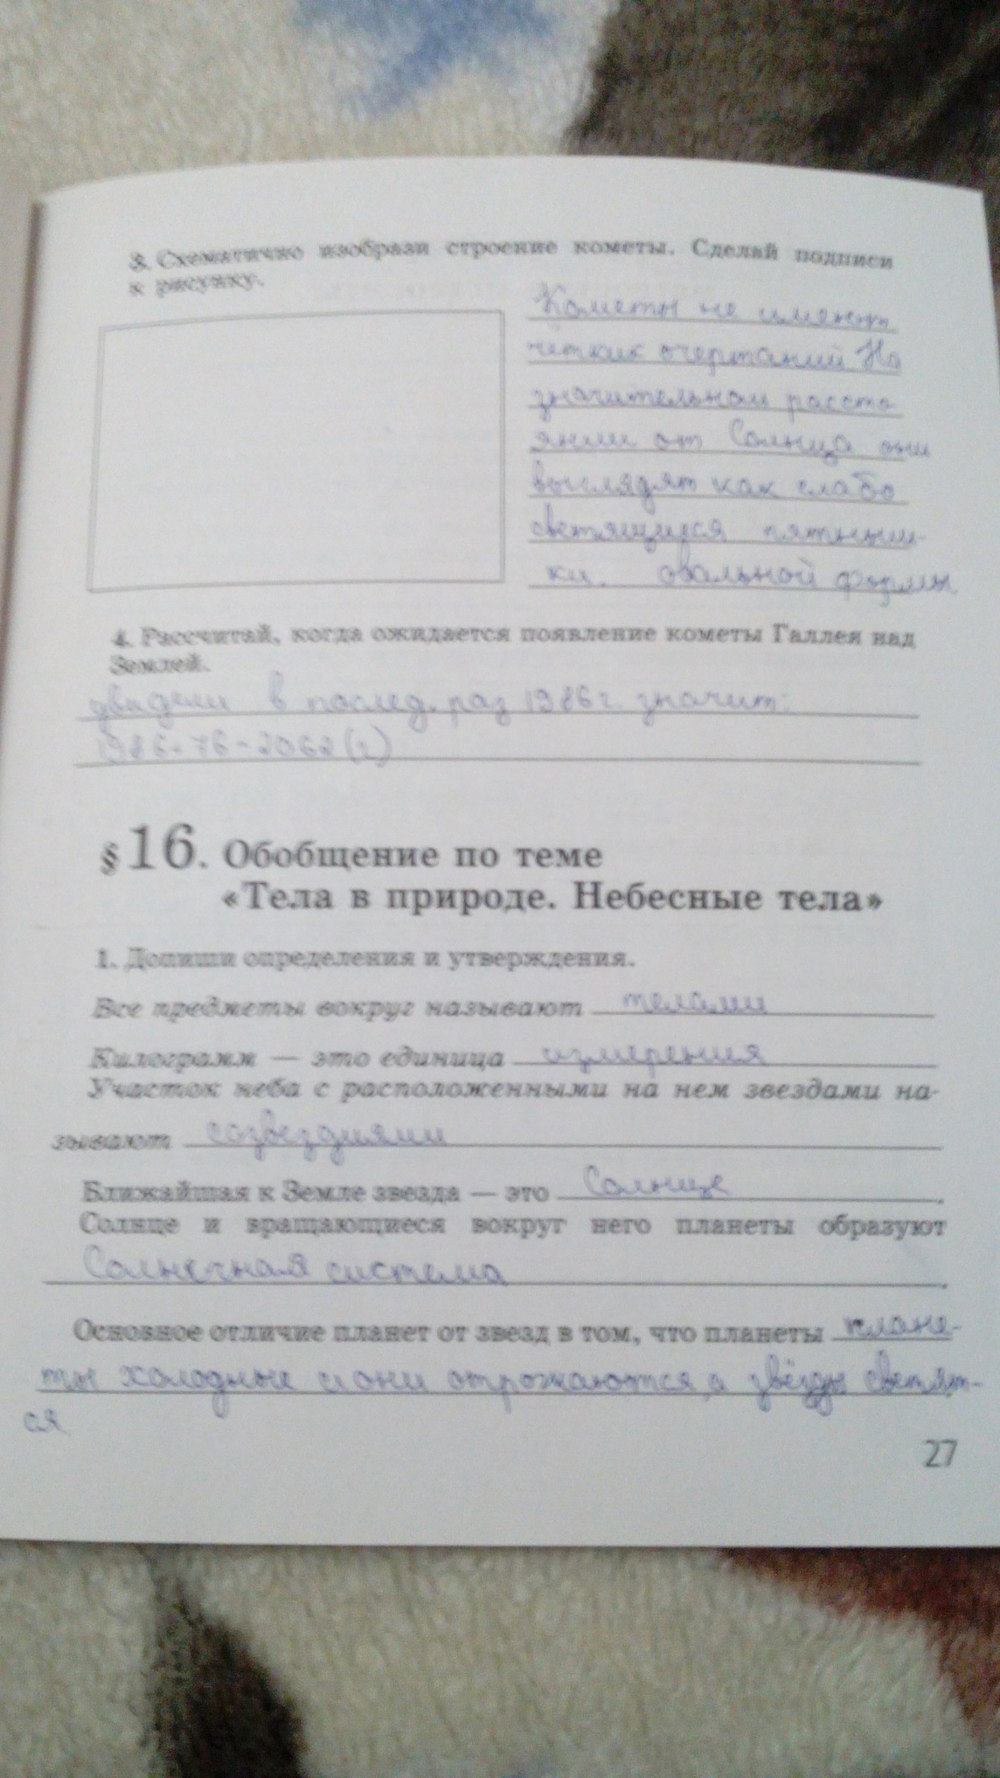 3. Схематично изобрази строение кометы. Сделай подписи
к рисунку.
Кометы не имеют
чётких очертаний На
значительном рассто
янии от Солнца они
выглядят как слабо
светящиеся пятныш-
ки. овальной формы
4. Рассчитай, когда ожидается появление кометы Галлея над
Землей.
в послед. раз 1986 г. значит:
1986+76=2062(г)
§ 16. Обобщение по теме
«Тела в природе. Небесные тела»
1. Допиши определения и утверждения.
Все предметы вокруг называют телами
Килограмм — это единица измерения
Участок неба с расположенными на нем звездами на-
зывают созвездиями
Ближайшая к Земле звезда — это Солнце.
Солнце и вращающиеся вокруг него планеты образуют
Солнечная система.
Основное отличие планет от звезд в том, что планеты плане-
ты холодные и они отрожаются, а звёзды светят-
ся
27